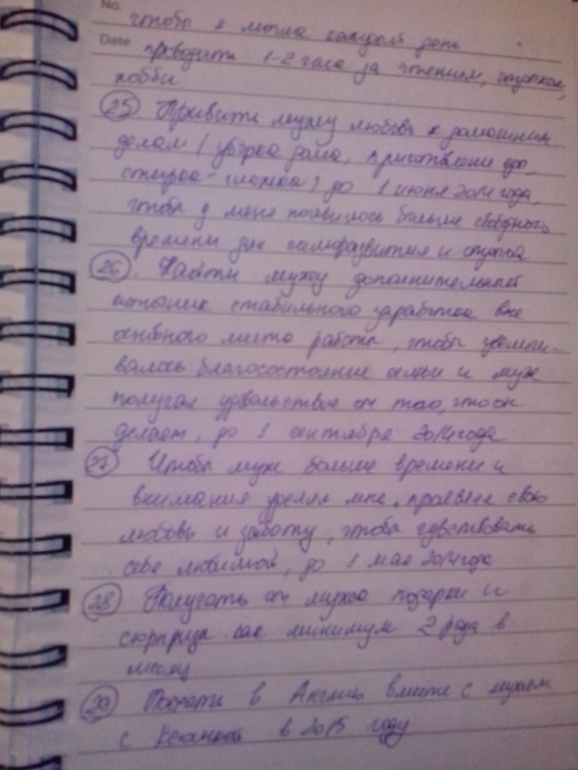 No.
чтобы я могла каждый день
Date проводить 1-2 часа за чтением, отдыхом,
хобби.
25 Привить мужу любовь к домашним
делам (уборка дома, приготовление еды,
стирка-глажка) до 1 июня 2014 года,
чтобы у меня появилось больше свободного
времени для саморазвития и отдыха
26. Найти мужу дополнительный
источник стабильного заработка вне
основного места работы, чтобы увели-
валось благосостояние семьи и муж
получал удовольствие от того, что он
делает, до 1 сентября 2014 года
27 Чтобы муж больше времени и
внимания уделял мне, проявлял свою
любовь и заботу, чтобы чувствовать
себя любимой, до 1 мая 2014 года
28 Получать от мужа подарки и
сюрпризы как минимум 2 раза в
месяц
29 Поехать в Англию вместе с мужем
с в 2015 году